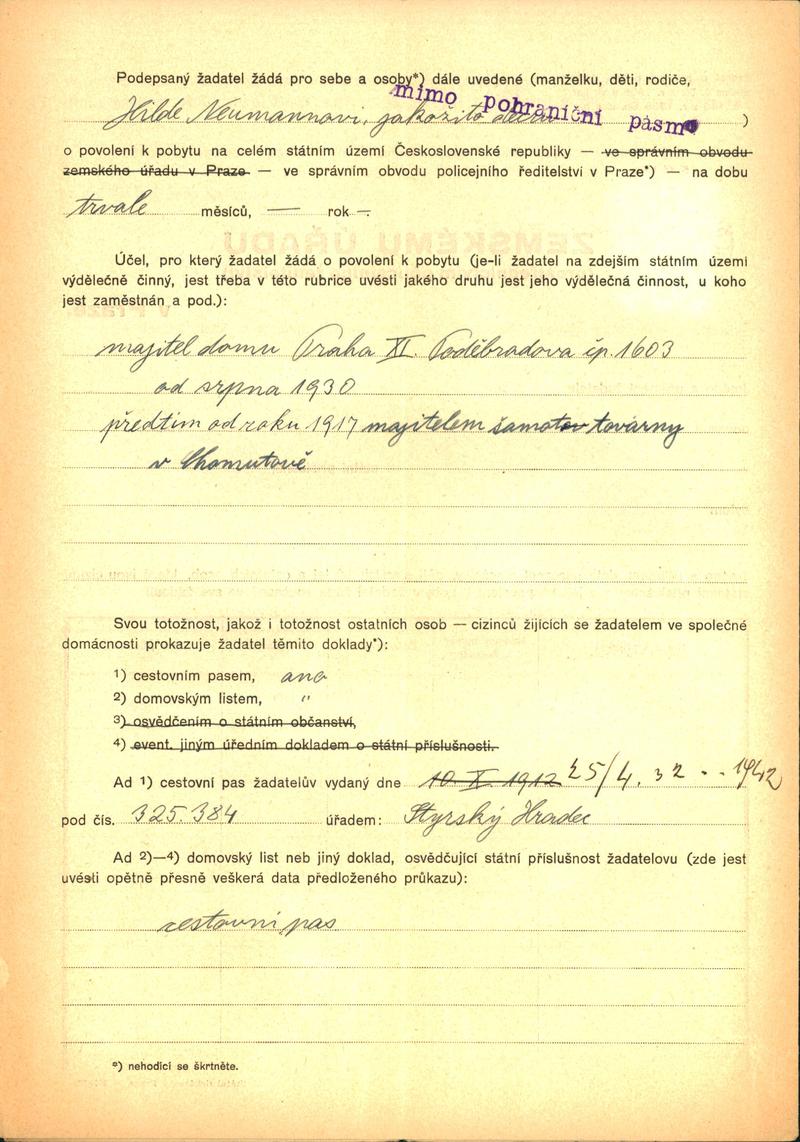 Podepsaný žadatel žádá pro sebe a osoby*) dále uvedené (manželku, děti, rodiče,
mimo pohraniční pásmo
Hilde Neumannovi, jakožito )
o povolení k pobytu na celém státním území Československé republiky — ve správním obvodu
zemského úřadu v Praze — ve správním obvodu policejního ředitelství v Praze*) — na dobu
trvale měsíců, — rok —.
Účel, pro který žadatel žádá o povolení k pobytu (je-li žadatel na zdejším státním území
výdělečně činný, jest třeba v této rubrice uvésti jakého druhu jest jeho výdělečná činnost, u koho
jest zaměstnán a pod.):
majitel domu Praha XI. Poděbradova čp. 1603
od srpna 1930
předtím od roku 1917 majitelem šamotov továrny
v Chomutově
Svou totožnost, jakož i totožnost ostatních osob — cizinců žijících se žadatelem ve společné
domácnosti prokazuje žadatel těmito doklady*):
1) cestovním pasem, ano
2) domovským listem, "
3) osvědčením o státním občanství,
4) event. jiným úředním dokladem o státní příslušnosti.
Ad 1) cestovní pas žadatelův vydaný dne 10 X. 1912 25/4. 32 - - 1942
pod čís. 325.384 úřadem: Styrský Hradec
Ad 2)—4) domovský list neb jiný doklad, osvědčující státní příslušnost žadatelovu (zde jest
uvésti opětně přesně veškerá data předloženého průkazu):
cestovní pas
*) nehodící se škrtněte.